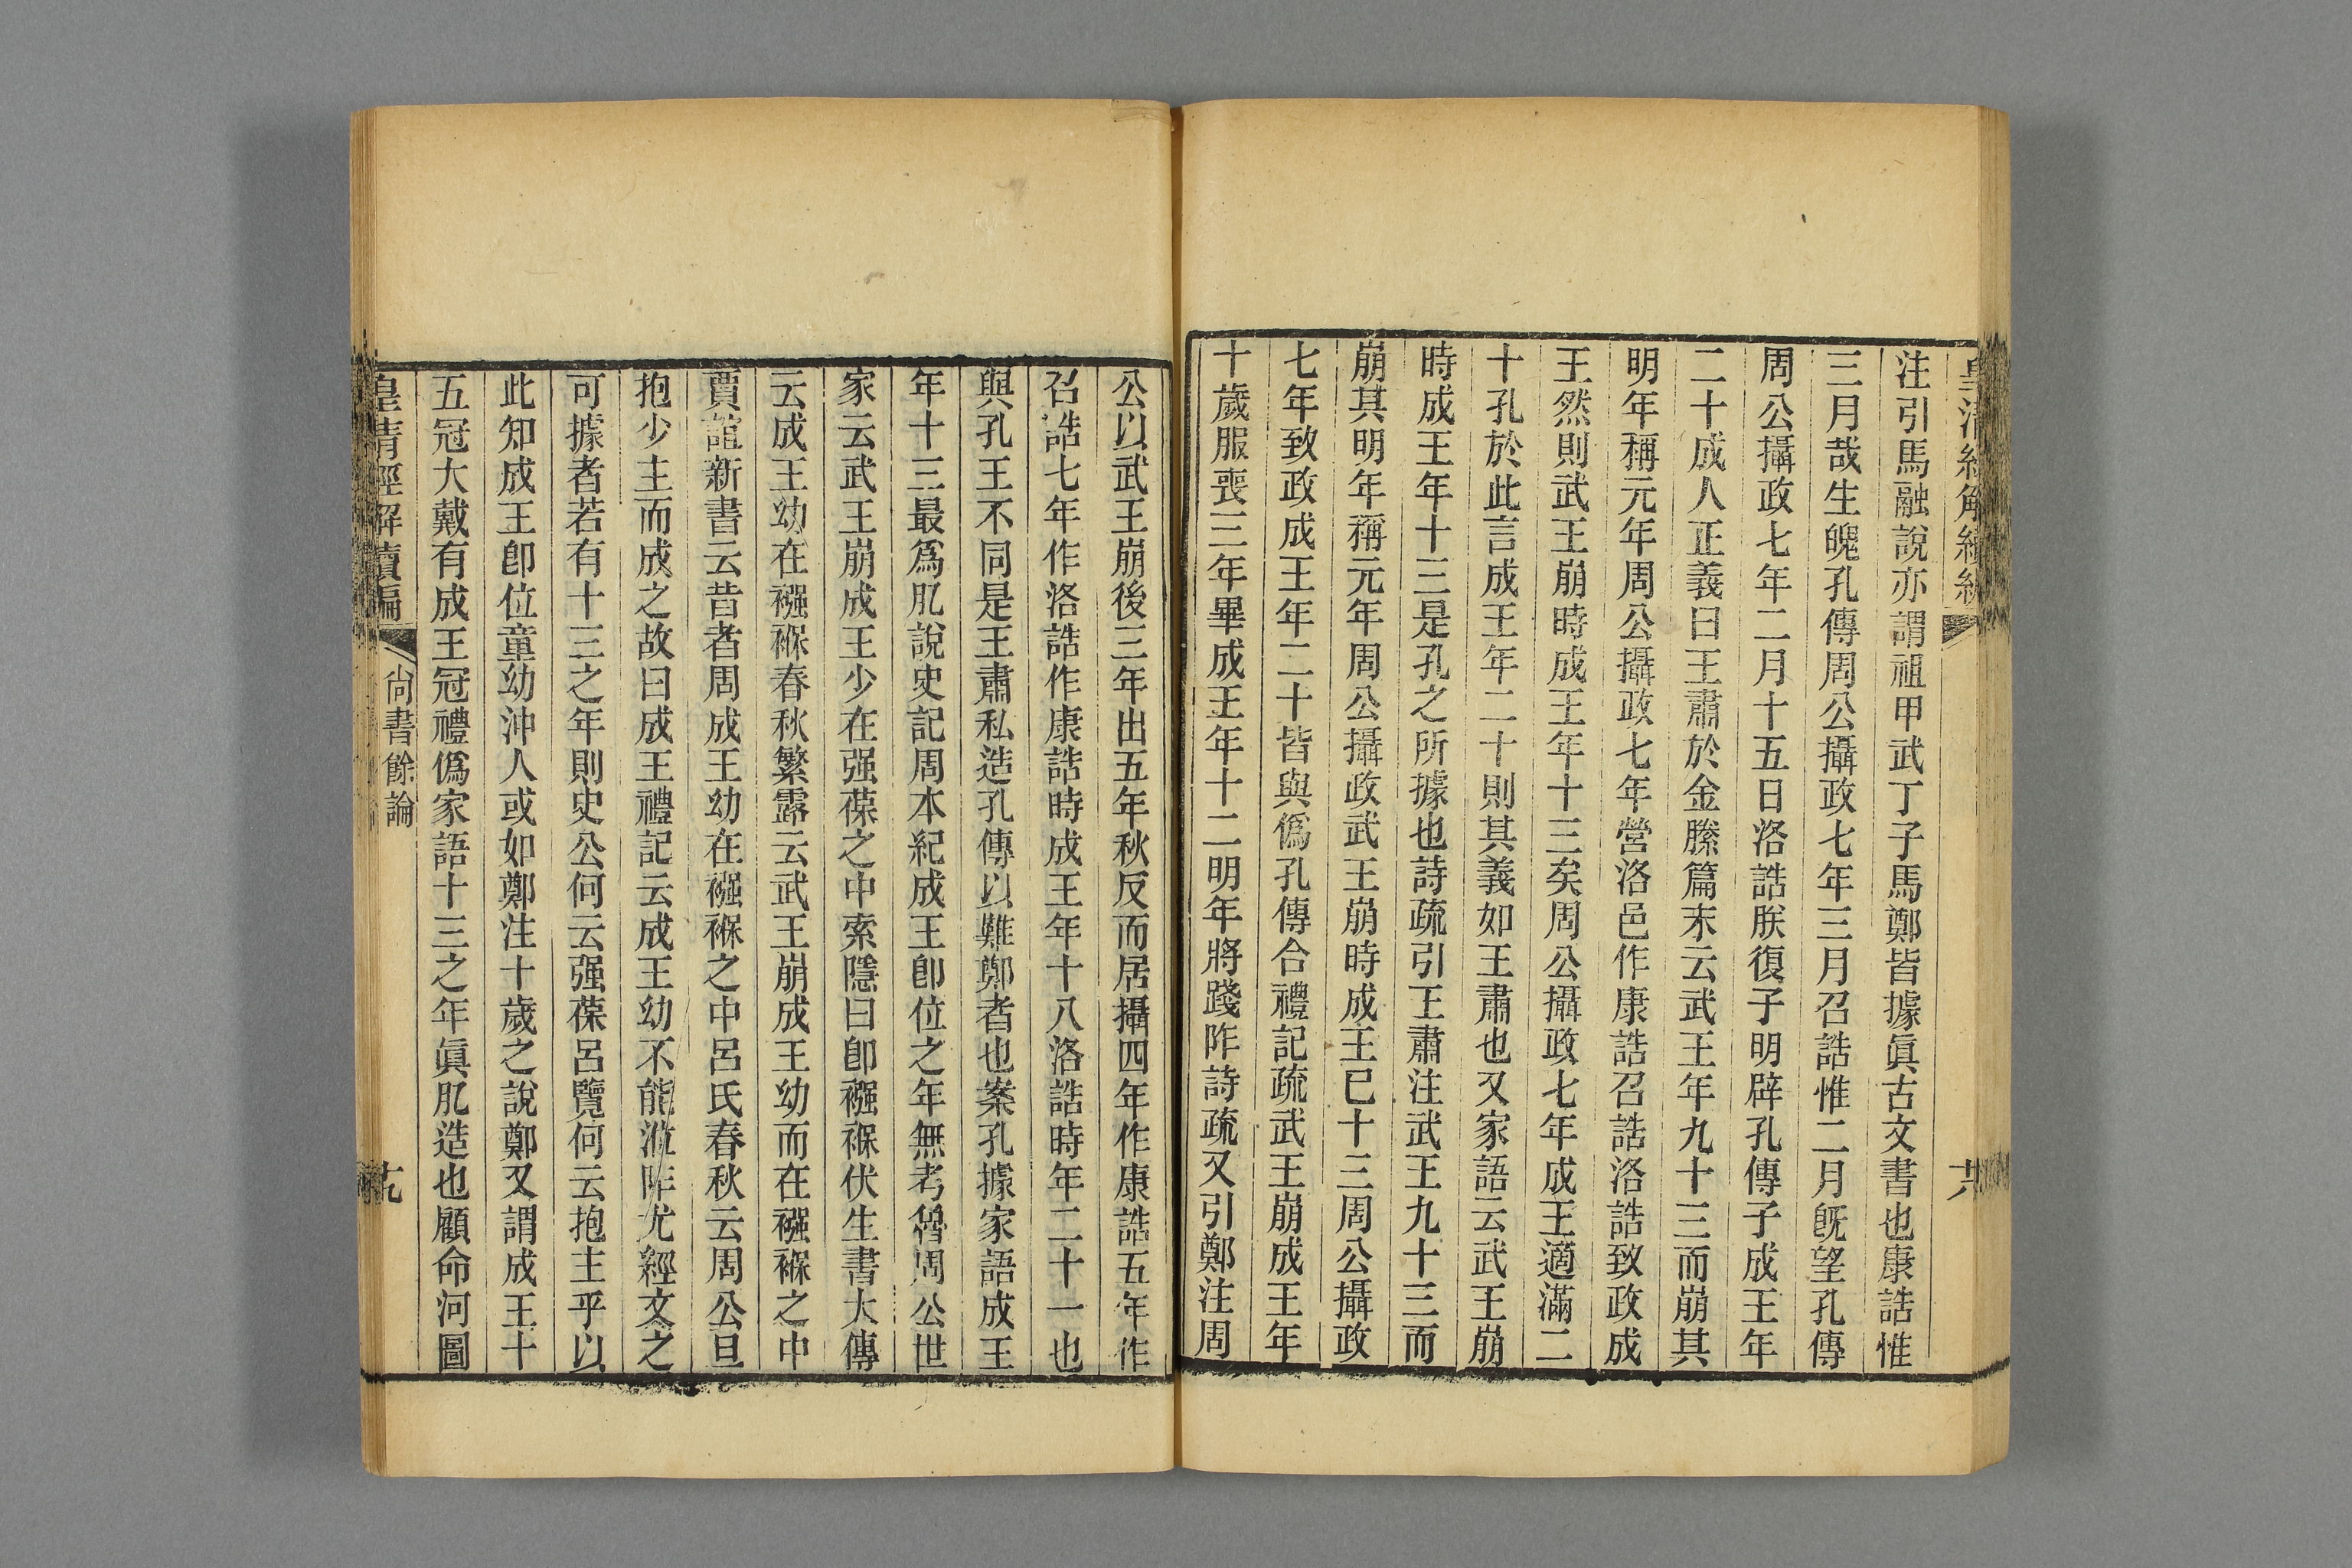 注引馬融說亦謂祖甲武丁子馬鄭皆據眞古文書也康誥惟
三月哉生魄孔傳周公攝政七年三月召誥惟二月旣望孔傳
周公攝政七年二月十五日洛誥朕復子明辟孔傳子成王年
二十成人正義曰王肅於金縢篇末云武王年九十三而崩其
明年稱元年周公攝政七年營洛邑作康誥召誥洛誥致政成
王然則武王崩時成王年十三矣周公攝政七年成王適滿二
十孔於此言成王年二十則其義如王肅也又家語云武王崩
時成王年十三是孔之所據也詩疏引王肅注武王九十三而
崩其明年稱元年周公攝政武王崩時成王已十三周公攝政
七年致政成王年二十皆與僞孔傳合禮記疏武王崩成王年
十歲服喪三年畢成王年十二明年將踐阼詩疏又引鄭注周
公以武王崩後三年出五年秋反而居攝四年作康誥五年作
召誥七年作洛誥作康誥時成王年十八洛誥時年二十一也
與孔王不同是王肅私造孔傳以難鄭者也案孔據家語成王
年十三最爲肊說史記周本紀成王卽位之年無考魯周公世
家云武王崩成王少在强葆之中索隱曰卽襁褓伏生書大傳
云成王幼在襁褓春秋繁露云武王崩成王幼而在襁褓之中
賈誼新書云昔者周成王幼在襁褓之中呂氏春秋云周公旦
抱少主而成之故曰成王禮記云成王幼不能涖阼尤經文之
可據者若有十三之年則史公何云强葆呂覽何云抱主乎以
此知成王卽位童幼沖人或如鄭注十歲之說鄭又謂成王十
五冠大戴有成王冠禮僞家語十三之年眞肊造也顧命河圖
皇清經解續編 尙書餘論